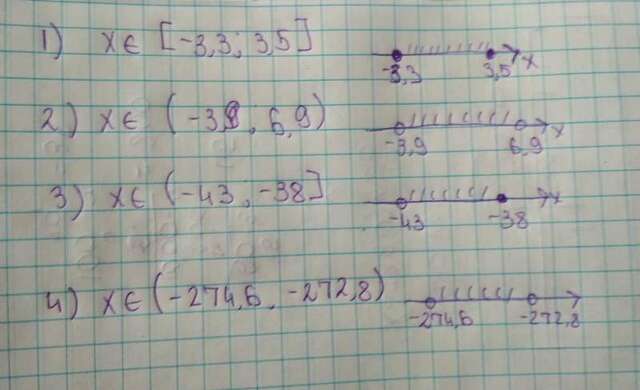 1) x∈ [-3,3; 3,5] -3,3 3,5 x
2) x∈ (-3,9; 6,9) -3,9 6,9 x
3) x∈ (-43; -38] -43 -38 x
4) x∈ (-274,6, -272,8) -274,6 -272,8